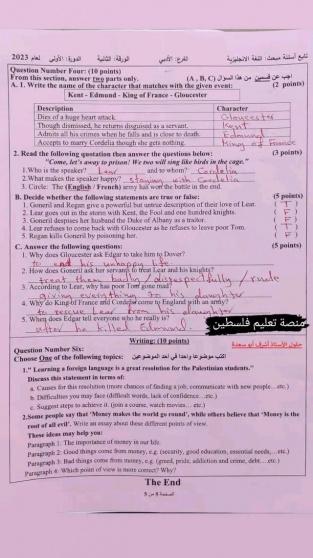 تابع أسئلة مبحث: اللغة الانجليزية الفرع: الأدبي الورقة: الثانية الدورة: الأولى لعام 2023
Question Number Four: (10 points)
From this section, answer two parts only. (A , B, C) اجب عن قسمين من هذا السؤال
A. 1. Write the name of the character that matches with the given event: (2 points)
Kent - Edmund - King of France - Gloucester
Description Character
Dies of a huge heart attack. Gloucester
Though dismissed, he returns disguised as a servant. Kent
Admits all his crimes when he falls and is close to death. Edmund
Accepts to marry Cordelia though she gets nothing. King of France
2. Read the following quotation then answer the questions below: (3 points)
"Come, let's away to prison! We two will sing like birds in the cage."
1.Who is the speaker? Lear and to whom? Cordelia
2.What makes the speaker happy? staying with Cordelia
3. Circle: The (English / French) army has won the battle in the end.
B. Decide whether the following statements are true or false: (5 points)
1. Goneril and Regan give a powerful but untrue description of their love of Lear. ( T )
2. Lear goes out in the storm with Kent, the Fool and one hundred knights. ( F )
3. Goneril despises her husband the Duke of Albany as a traitor. ( F )
4. Lear refuses to come back with Gloucester as he refuses to leave poor Tom. ( T )
5. Regan kills Goneril by poisoning her. ( F )
C. Answer the following questions: (5 points)
1. Why does Gloucester ask Edgar to take him to Dover?
to end his unhappy life
2. How does Goneril ask her servants to treat Lear and his knights?
treat them badly / disrespectfully / rude
3. According to Lear, why has poor Tom gone mad?
giving everything to his daughter
4. Why do King of France and Cordelia come to England with an army?
to rescue Lear from his daughter
5. When does Edgar tell everyone who he really is?
after he killed Edmund.
منصة تعليم فلسطين
حلول الأستاذ أشرف أبو سعدة
Writing: (10 points)
Question Number Six:
Choose One of the following topics: اكتب موضوعا واحدا في أحد الموضوعين
1." Learning a foreign language is a great resolution for the Palestinian students."
Discuss this statement in terms of:
a. Causes for this resolution (more chances of finding a job, communicate with new people…etc.)
b. Difficulties you may face (difficult words, lack of confidence…etc.)
c. Suggest steps to achieve it. (join a course, watch movies… etc.)
2.Some people say that 'Money makes the world go round', while others believe that 'Money is the
root of all evil'. Write an essay about these different points of view.
These ideas may help you:
Paragraph 1: The importance of money in our life.
Paragraph 2: Good things come from money, e.g. (security, good education, essential needs,…etc.)
Paragraph 3: Bad things come from money, e.g. (greed, pride, addiction and crime, debt….etc.)
Paragraph 4: Which point of view is more correct? Why?
The End
الصفحة 5 من 5